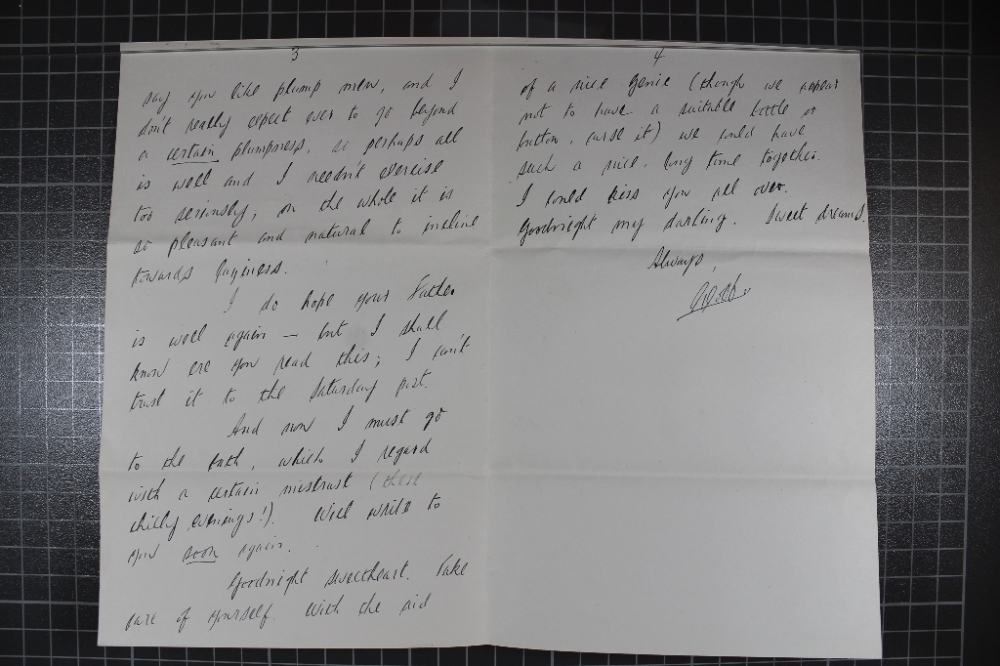 3
say you like plump men, and I
don't really expect ever to go beyond
a certain plumpness, so perhaps all
is well and I needn't exercise
too seriously, on the whole it is
so pleasant and natural to incline
towards laziness.
I do hope your Father
is well again — but I shall
know ere you read this; I can't
trust it to the Saturday post.
And now I must go
to the bath, which I regard
with a certain mistrust (these
chilly evenings!). Will write to
you soon again.
Goodnight sweetheart. Take
care of yourself. With the aid
4
of a nice genie (though we appear
not to have a suitable bottle or
button, curse it) we could have
such a nice long time together.
I could kiss you all over.
Goodnight my darling. Sweet dreams.
Always,